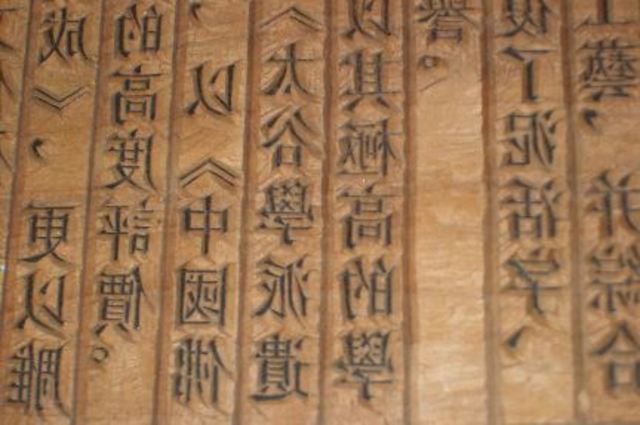 成》，更以雕
的高度評價。
，以《中國佛
《太谷學派遺
以其極高的學
譽。
復了泥活字、
工藝，并綜合